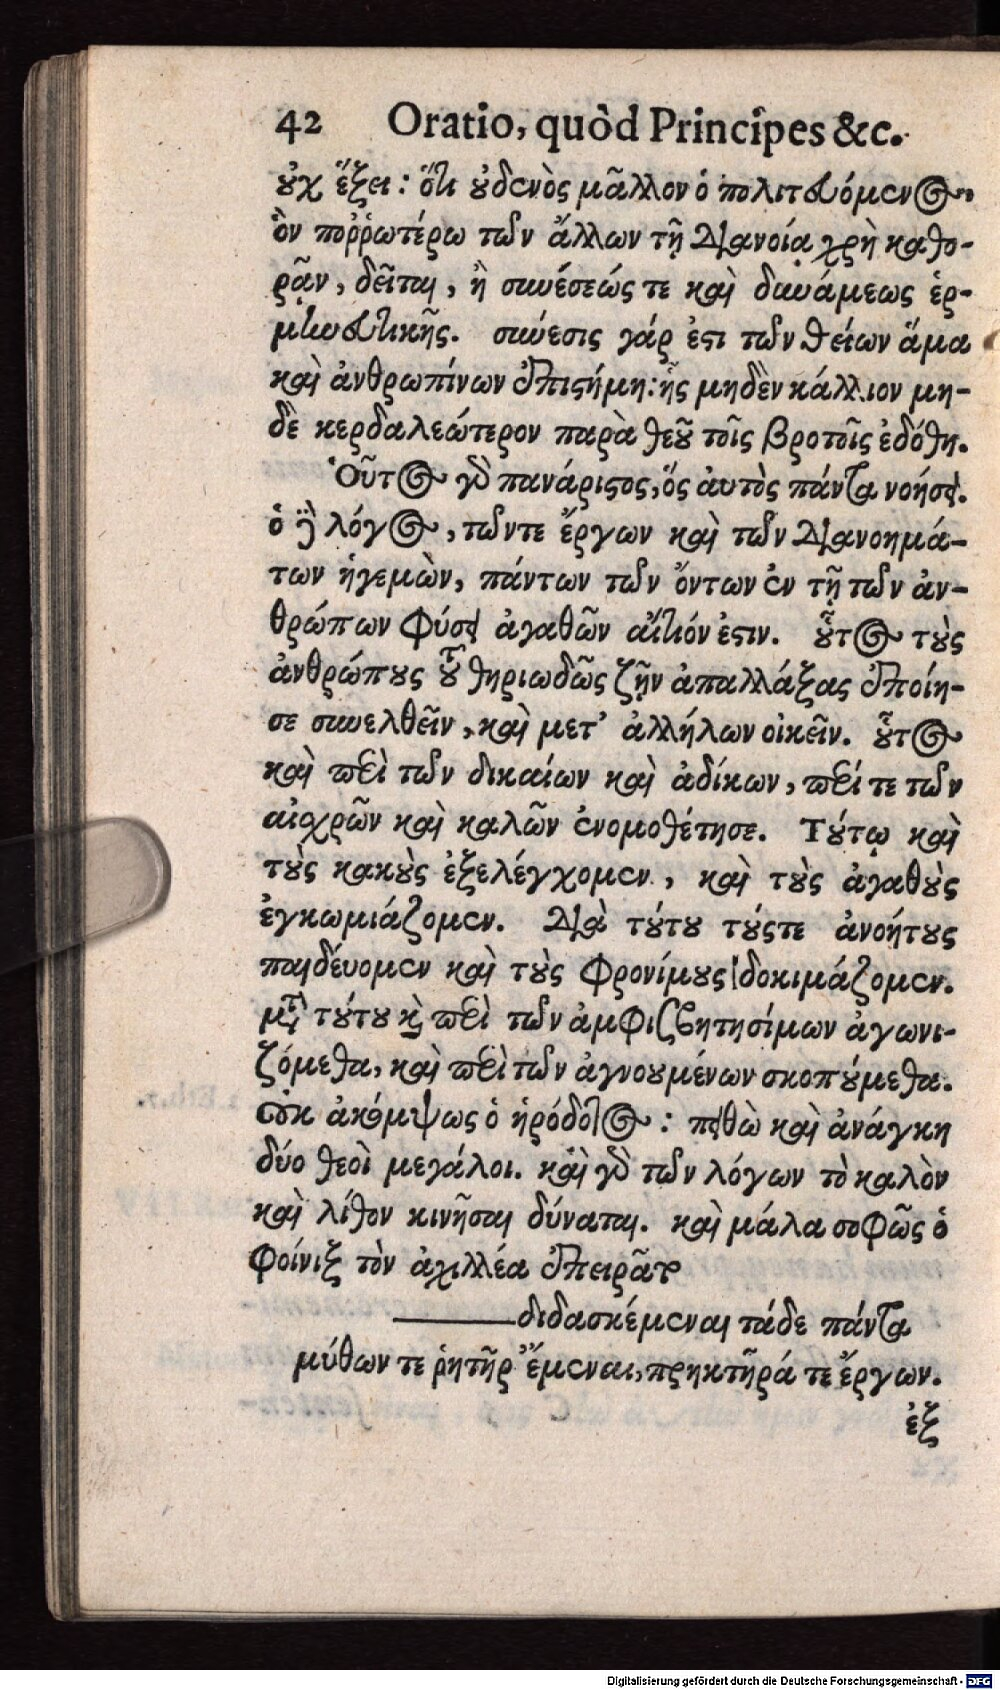 42 Oratio, quòd Principes &c.
οὐχ ἕξει: ὅτι οὐδενὸς μᾶλλον ὁ πολιτευόμενος,
ὃν ποῤῥωτέρω τῶν ἄλλων τῇ διανοίᾳ χρὴ καθο-
ρᾷν, δεῖται, ἢ συνέσεώς τε καὶ δυνάμεως ἑρ-
μηνευτικῆς. σύνεσις γάρ ἐστι τῶν θείων ἅμα
καὶ ἀνθρωπίνων ἐπιστήμη: ἧς μηδὲν κάλλιον μη-
δὲ κερδαλεώτερον παρὰ θεοῦ τοῖς βροτοῖς ἐδόθη.
Οὗτος γὰρ πανάριστος, ὅς αὐτὸς πάντα νοήσει.
ὁ δὲ λόγος, τῶντε ἔργων καὶ τῶν διανοημά-
των ἡγεμὼν, πάντων τῶν ὄντων ἐν τῇ τῶν ἀν-
θρώπων φύσει ἀγαθῶν αἴτιόν ἐστιν. οὗτος τοὺς
ἀνθρώπους τοῦ θηριωδῶς ζῇν ἀπαλλάξας ἐποίη-
σε συνελθεῖν, καὶ μετ' ἀλλήλων οἰκεῖν. οὗτος
καὶ περὶ τῶν δικαίων καὶ ἀδίκων, περί τε τῶν
αἰσχρῶν καὶ καλῶν ἐνομοθέτησε. Τούτῳ καὶ
τοὺς κακοὺς ἐξελέγχομεν, καὶ τοὺς ἀγαθοὺς
ἐγκωμιάζομεν. Διὰ τούτου τούςτε ἀνοήτους
παιδέυομεν καὶ τοὺς φρονίμους δοκιμάζομεν.
μετὰ τούτου καὶ περὶ τῶν ἀμφισβητησίμων ἀγωνι-
ζόμεθα, καὶ περὶ τῶν ἀγνουμένων σκοπούμεθα.
οὐκ ἀκόμψως ὁ ἡρόδοτος: πειθὼ καὶ ἀνάγκη
δύο θεοὶ μεγάλοι. καὶ γὰρ τῶν λόγων τὸ καλὸν
καὶ λίθον κινῆσαι δύναται. καὶ μάλα σοφῶς ὁ
φοίνιξ τὸν ἀχιλλέα ἐπειρᾶτο
διδασκέμεναι τάδε πάντα
μύθων τε ῥητῆρ' ἔμεναι, πρηκτῆρά τε ἔργων.
ἐξ
Digitalisierung gefördert durch die Deutsche Forschungsgemeinschaft - DFG